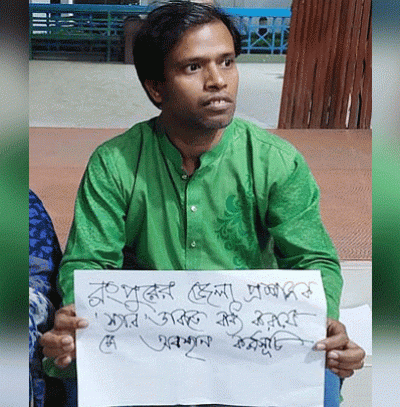 রংপুরের জেলা প্রশাসক
'স্যার' ডাকতে বাধ্য করায়
অবস্থান কর্মসূচি